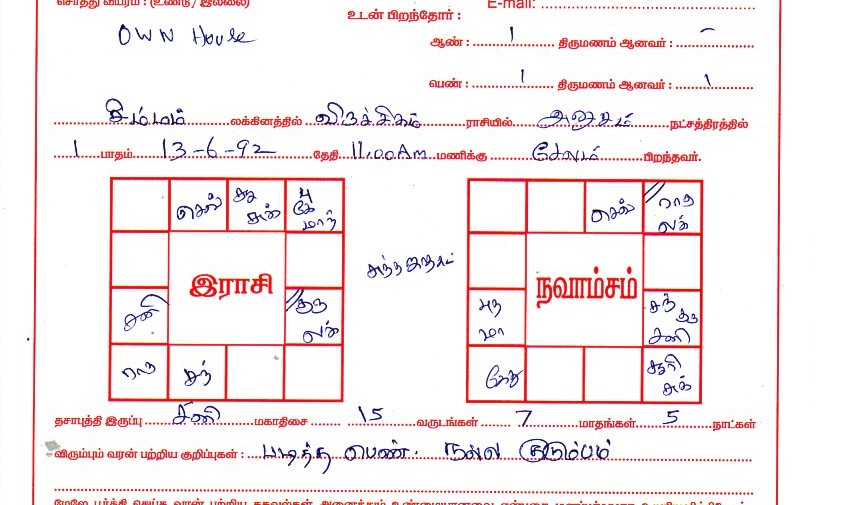 சொத்து விபரம் : (உண்டு / இல்லை)
E-mail:
உடன் பிறந்தோர் :
OWN House
ஆண் : 1 திருமணம் ஆனவர் : –
பெண் : 1 திருமணம் ஆனவர் : 1
சிம்மம் லக்கினத்தில் விருச்சிகம் ராசியில் அனுசம் நட்சத்திரத்தில்
1 பாதம் 13-6-92 தேதி 11.00Am மணிக்கு சேலம் பிறந்தவர்.
செவ்
சூ
சுக்
பு
கே
மாந்
செவ்
ராகு
லக்
இராசி
நவாம்சம்
சனி
குரு
லக்
புத
மா
சந்
குரு
சனி
ராகு
சந்
கேது
சூரி
சுக்
தசாபுத்தி இருப்பு சனி மகாதிசை 15 வருடங்கள் 7 மாதங்கள் 5 நாட்கள்
விரும்பும் வரன் பற்றிய குறிப்புகள் : படித்த பெண். நல்ல குடும்பம்